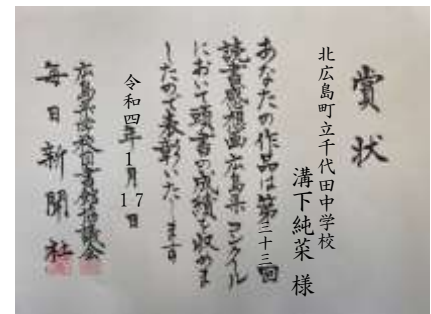 賞状
北広島町立千代田中学校
溝下純菜 様
あなたの作品は第三十三回
読書感想画広島県コンクール
において頭書の成績を収めま
したので表彰いたします
令和四年1月17日
広島県学校図書館協議会
毎日新聞社